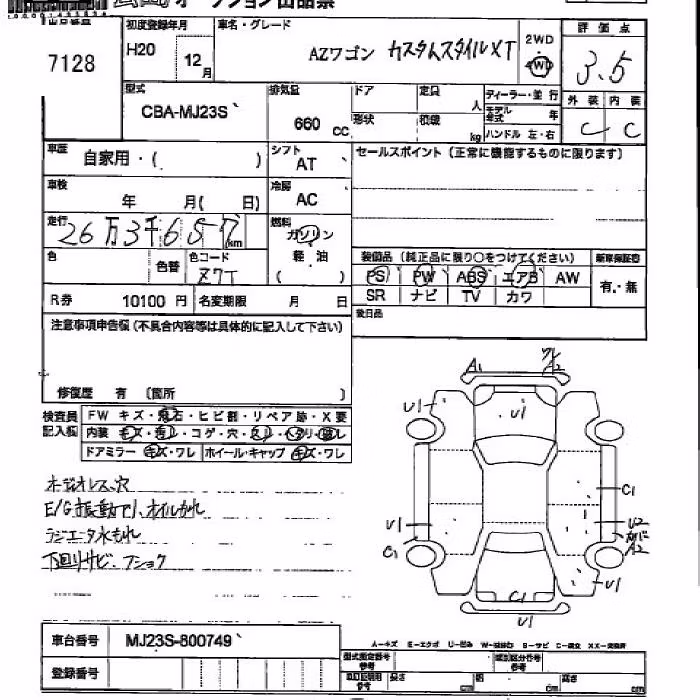 オークション出品票
出品番号
7128
初度登録年月
H20 12月
車名・グレード
AZワゴン カスタムスタイルXT
2WD
4WD
評価点
3.5
外装 内装
C C
型式
CBA-MJ23S
排気量
660 CC
ドア 定員 人
形状 積載 kg
ディーラー・並行
モデル年式 年
ハンドル 左・右
車歴
自家用・( )
シフト
AT
セールスポイント(正常に機能するものに限ります)
車検
年 月( 日)
冷房
AC
走行
26万3千657km
燃料
ガソリン
軽油
( )
色
色替
色コード
Z7T
装備品(純正品に限り○をつけてください)
PS PW ABS エアB AW
SR ナビ TV カワ
新車保証書
有・無
R券 10100円
名変期限 月 日
後日品
注意事項申告欄(不具合内容等は具体的に記入して下さい)
修復歴 有 〔箇所 〕
検査員記入欄
FW キズ・飛石・ヒビ割・リペア跡・X要
内装 キズ・汚レ・コゲ・穴・スリ・ヘタリ・破レ
ドアミラー キズ・ワレ ホイール・キャップ キズ・ワレ
E/G振動アリ、オイルもれ
ラジエータ水もれ
下回りサビ、フショク
A1
ワレ
A2
U1
U1
C1
U1
U2
A2
C1
C1
U1
U1
A-キズ E-エクボ U-凹み B-サビ
車台番号 MJ23S-600749
登録番号
型式指定番号 参考
類別区分番号 参考
長さ cm 幅 cm 高さ cm